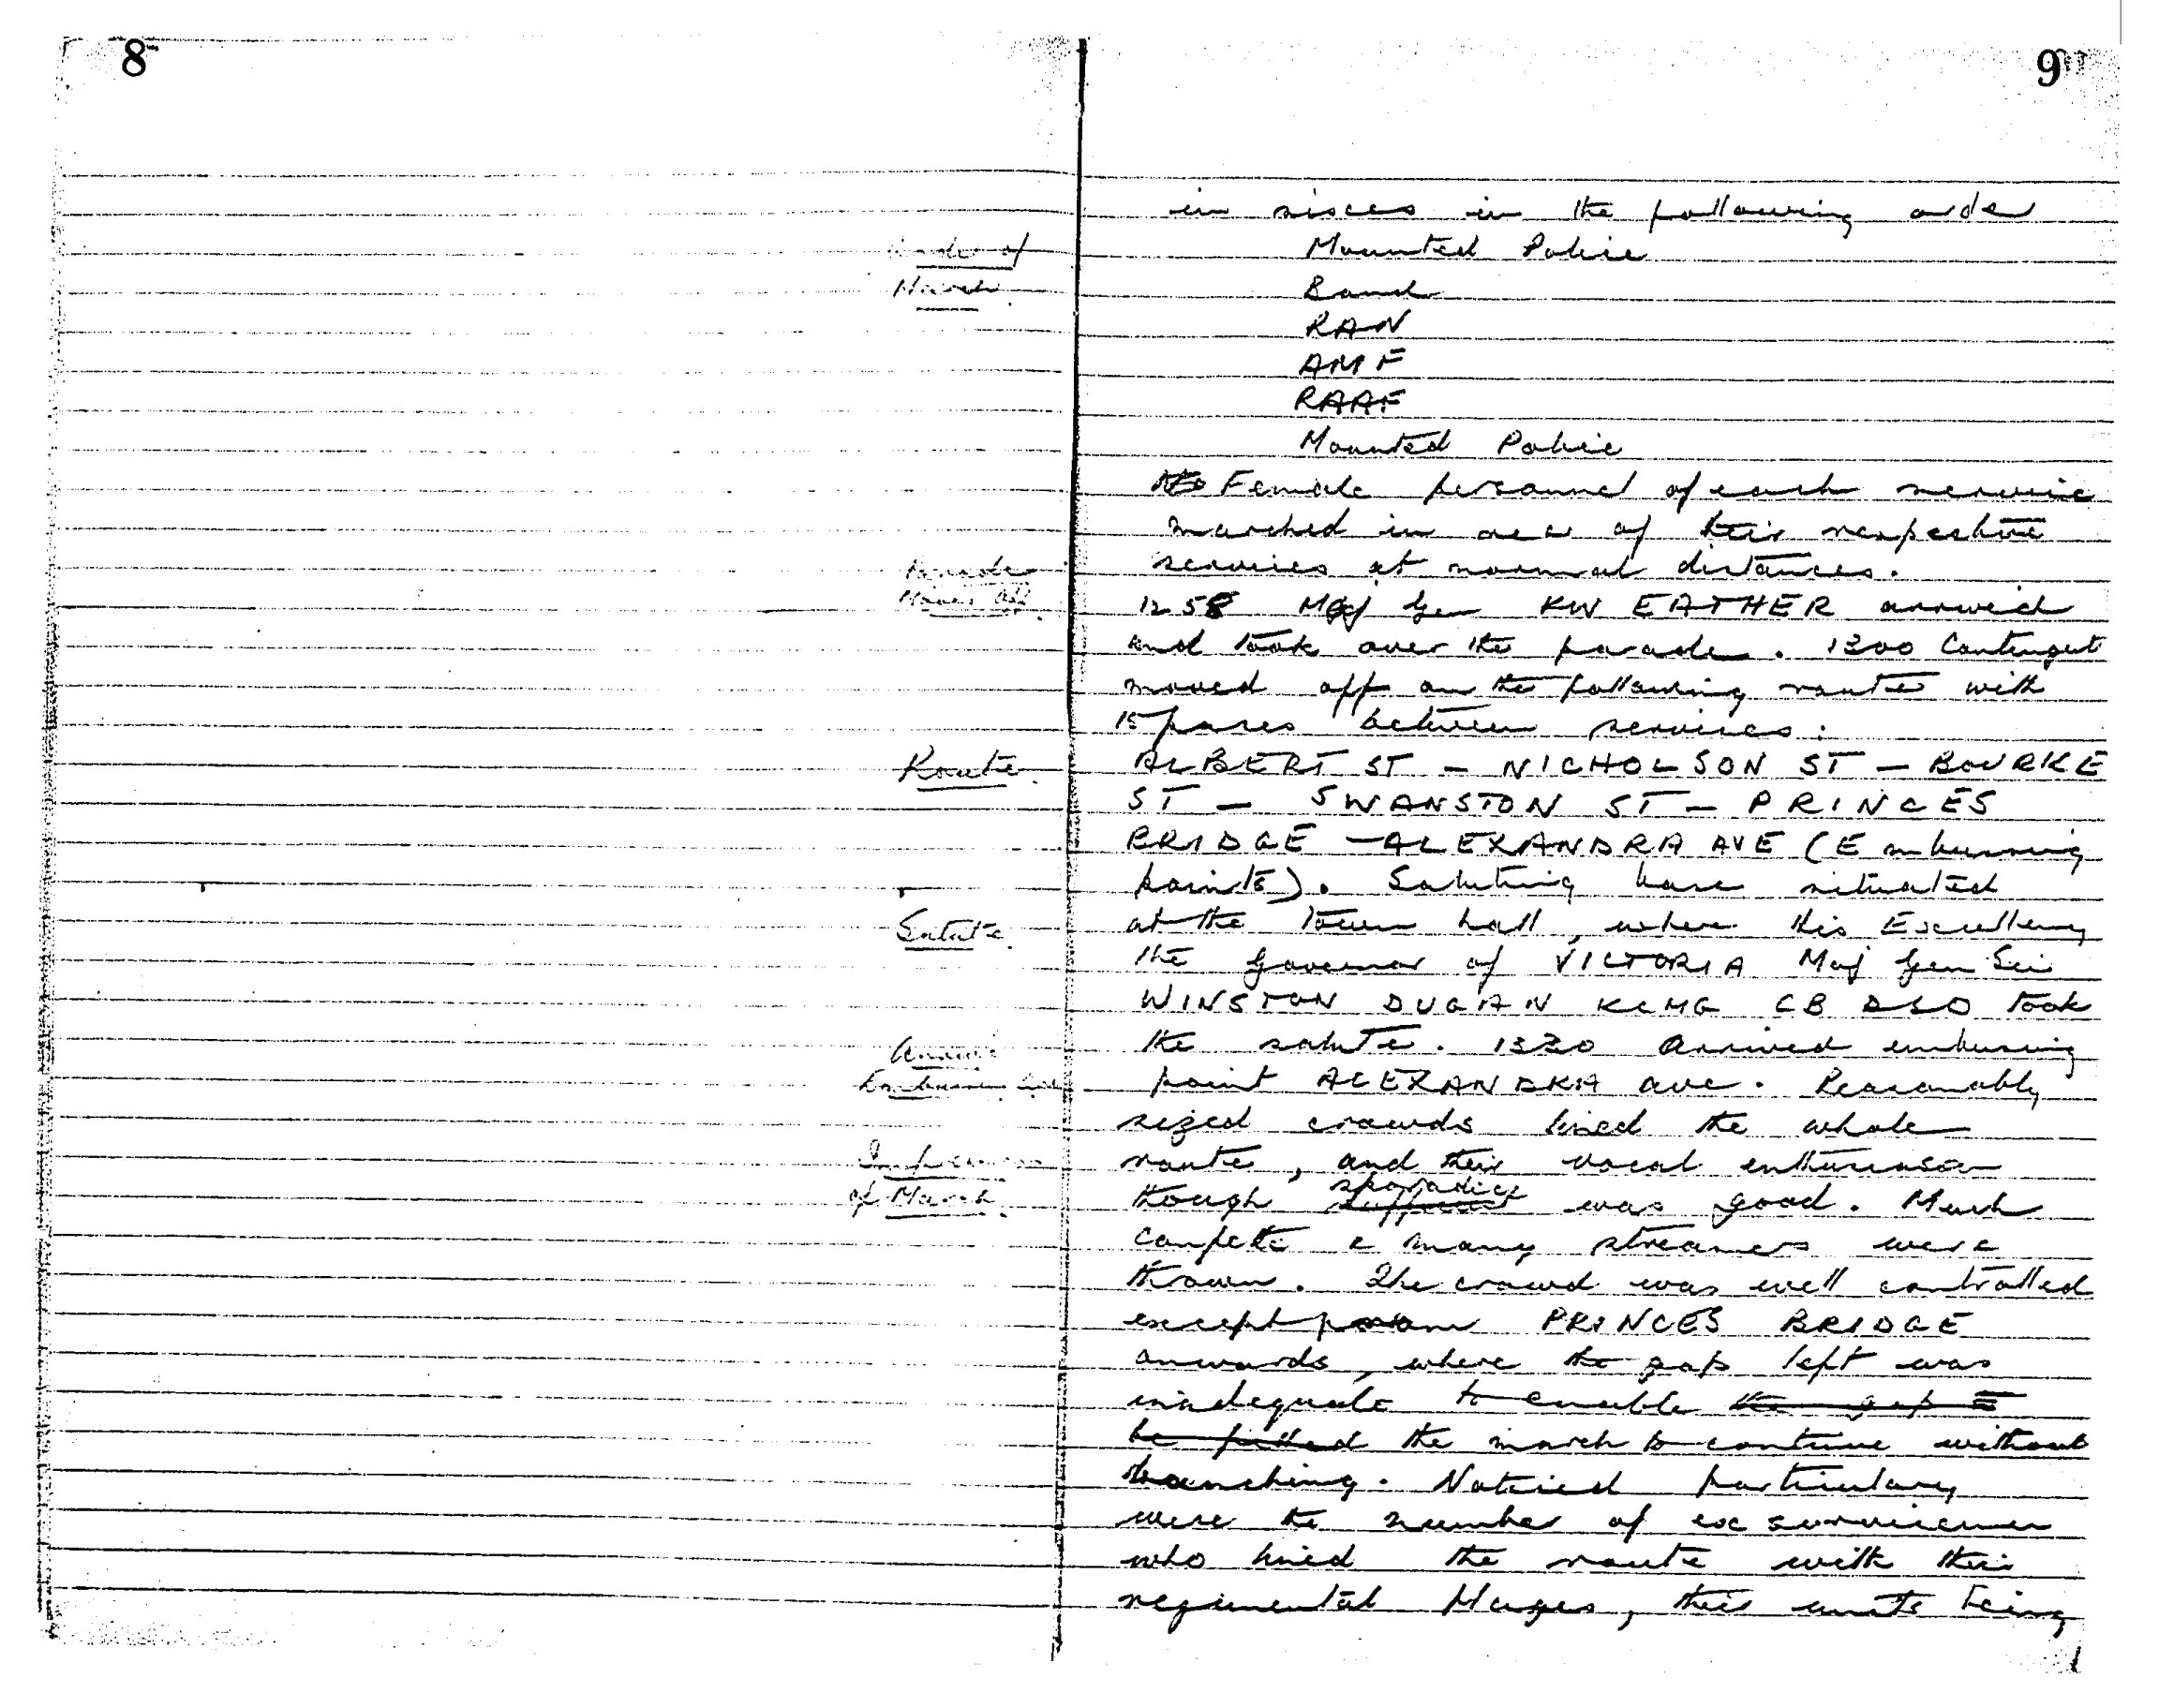 8
9
in sixes in the following order
Order of
Mounted Police
March
Band
RAN
AMF
RAAF
Mounted Police
Female personnel of each service
marched in rear of their respective
Parade
services at normal distances.
Moves Off
1258 Maj Gen KW EATHER arrived
and took over the parade. 1300 Contingent
moved off on the following route with
15 paces between services:
Route
ALBERT ST – NICHOLSON ST – BOURKE
ST – SWANSTON ST – PRINCES
BRIDGE – ALEXANDRA AVE (Embussing
points). Saluting base situated
Salute
at the town hall, where His Excellency
the Governor of VICTORIA Maj Gen Sir
WINSTON DUGAN KCMG CB DSO took
Arrive
the salute. 1330 Arrived embussing
Embussing
point ALEXANDRA ave. Reasonably
sized crowds lined the whole
Impression
route, and their vocal enthusiasm
of March
though sporadic was good. Much
confetti & many streamers were
thrown. The crowd was well controlled
except from PRINCES BRIDGE
onwards, where the gap left was
inadequate to enable the gap to
be filled the march to continue without
bunching. Noticed particulary
were the number of ex servicemen
who lined the route with their
regimental flags, their units being